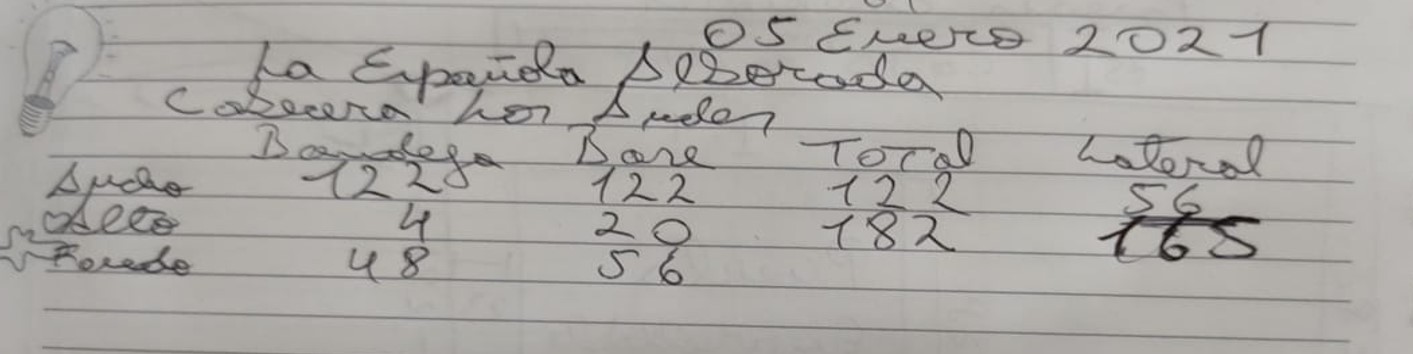 05 Enero 2021
La Española Alborada
Cabecera por Suden
Bandeja Base Total Lateral
Ancho 122 122 122 56
Alto 4 20 182 165
Fondo 48 56